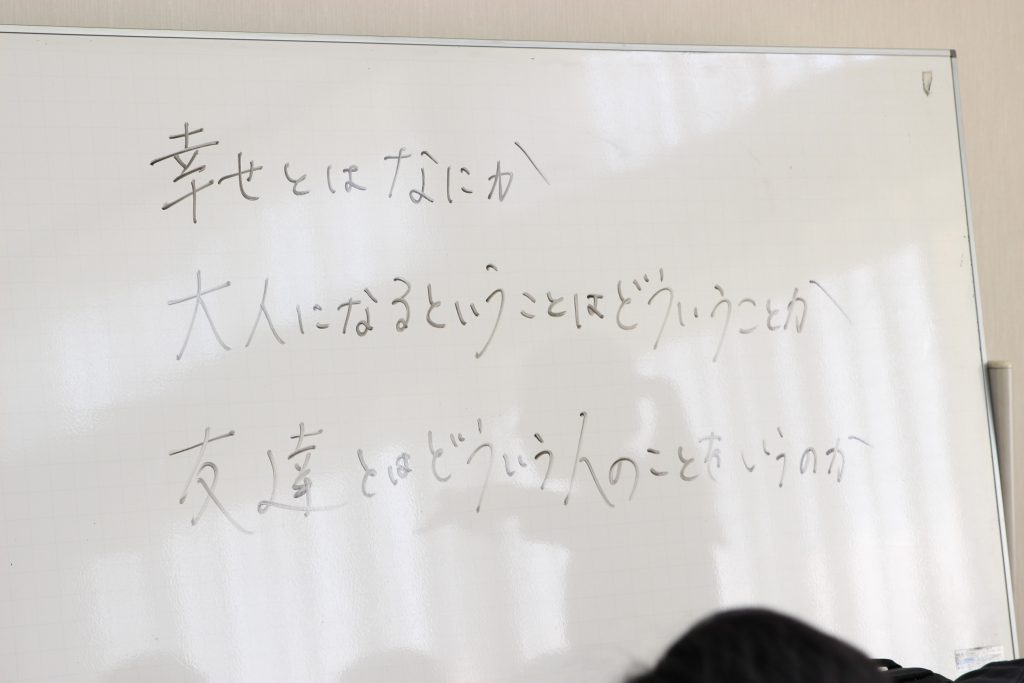 幸せとはなにか
大人になるということはどういうことか
友達とはどういう人のことをいうのか